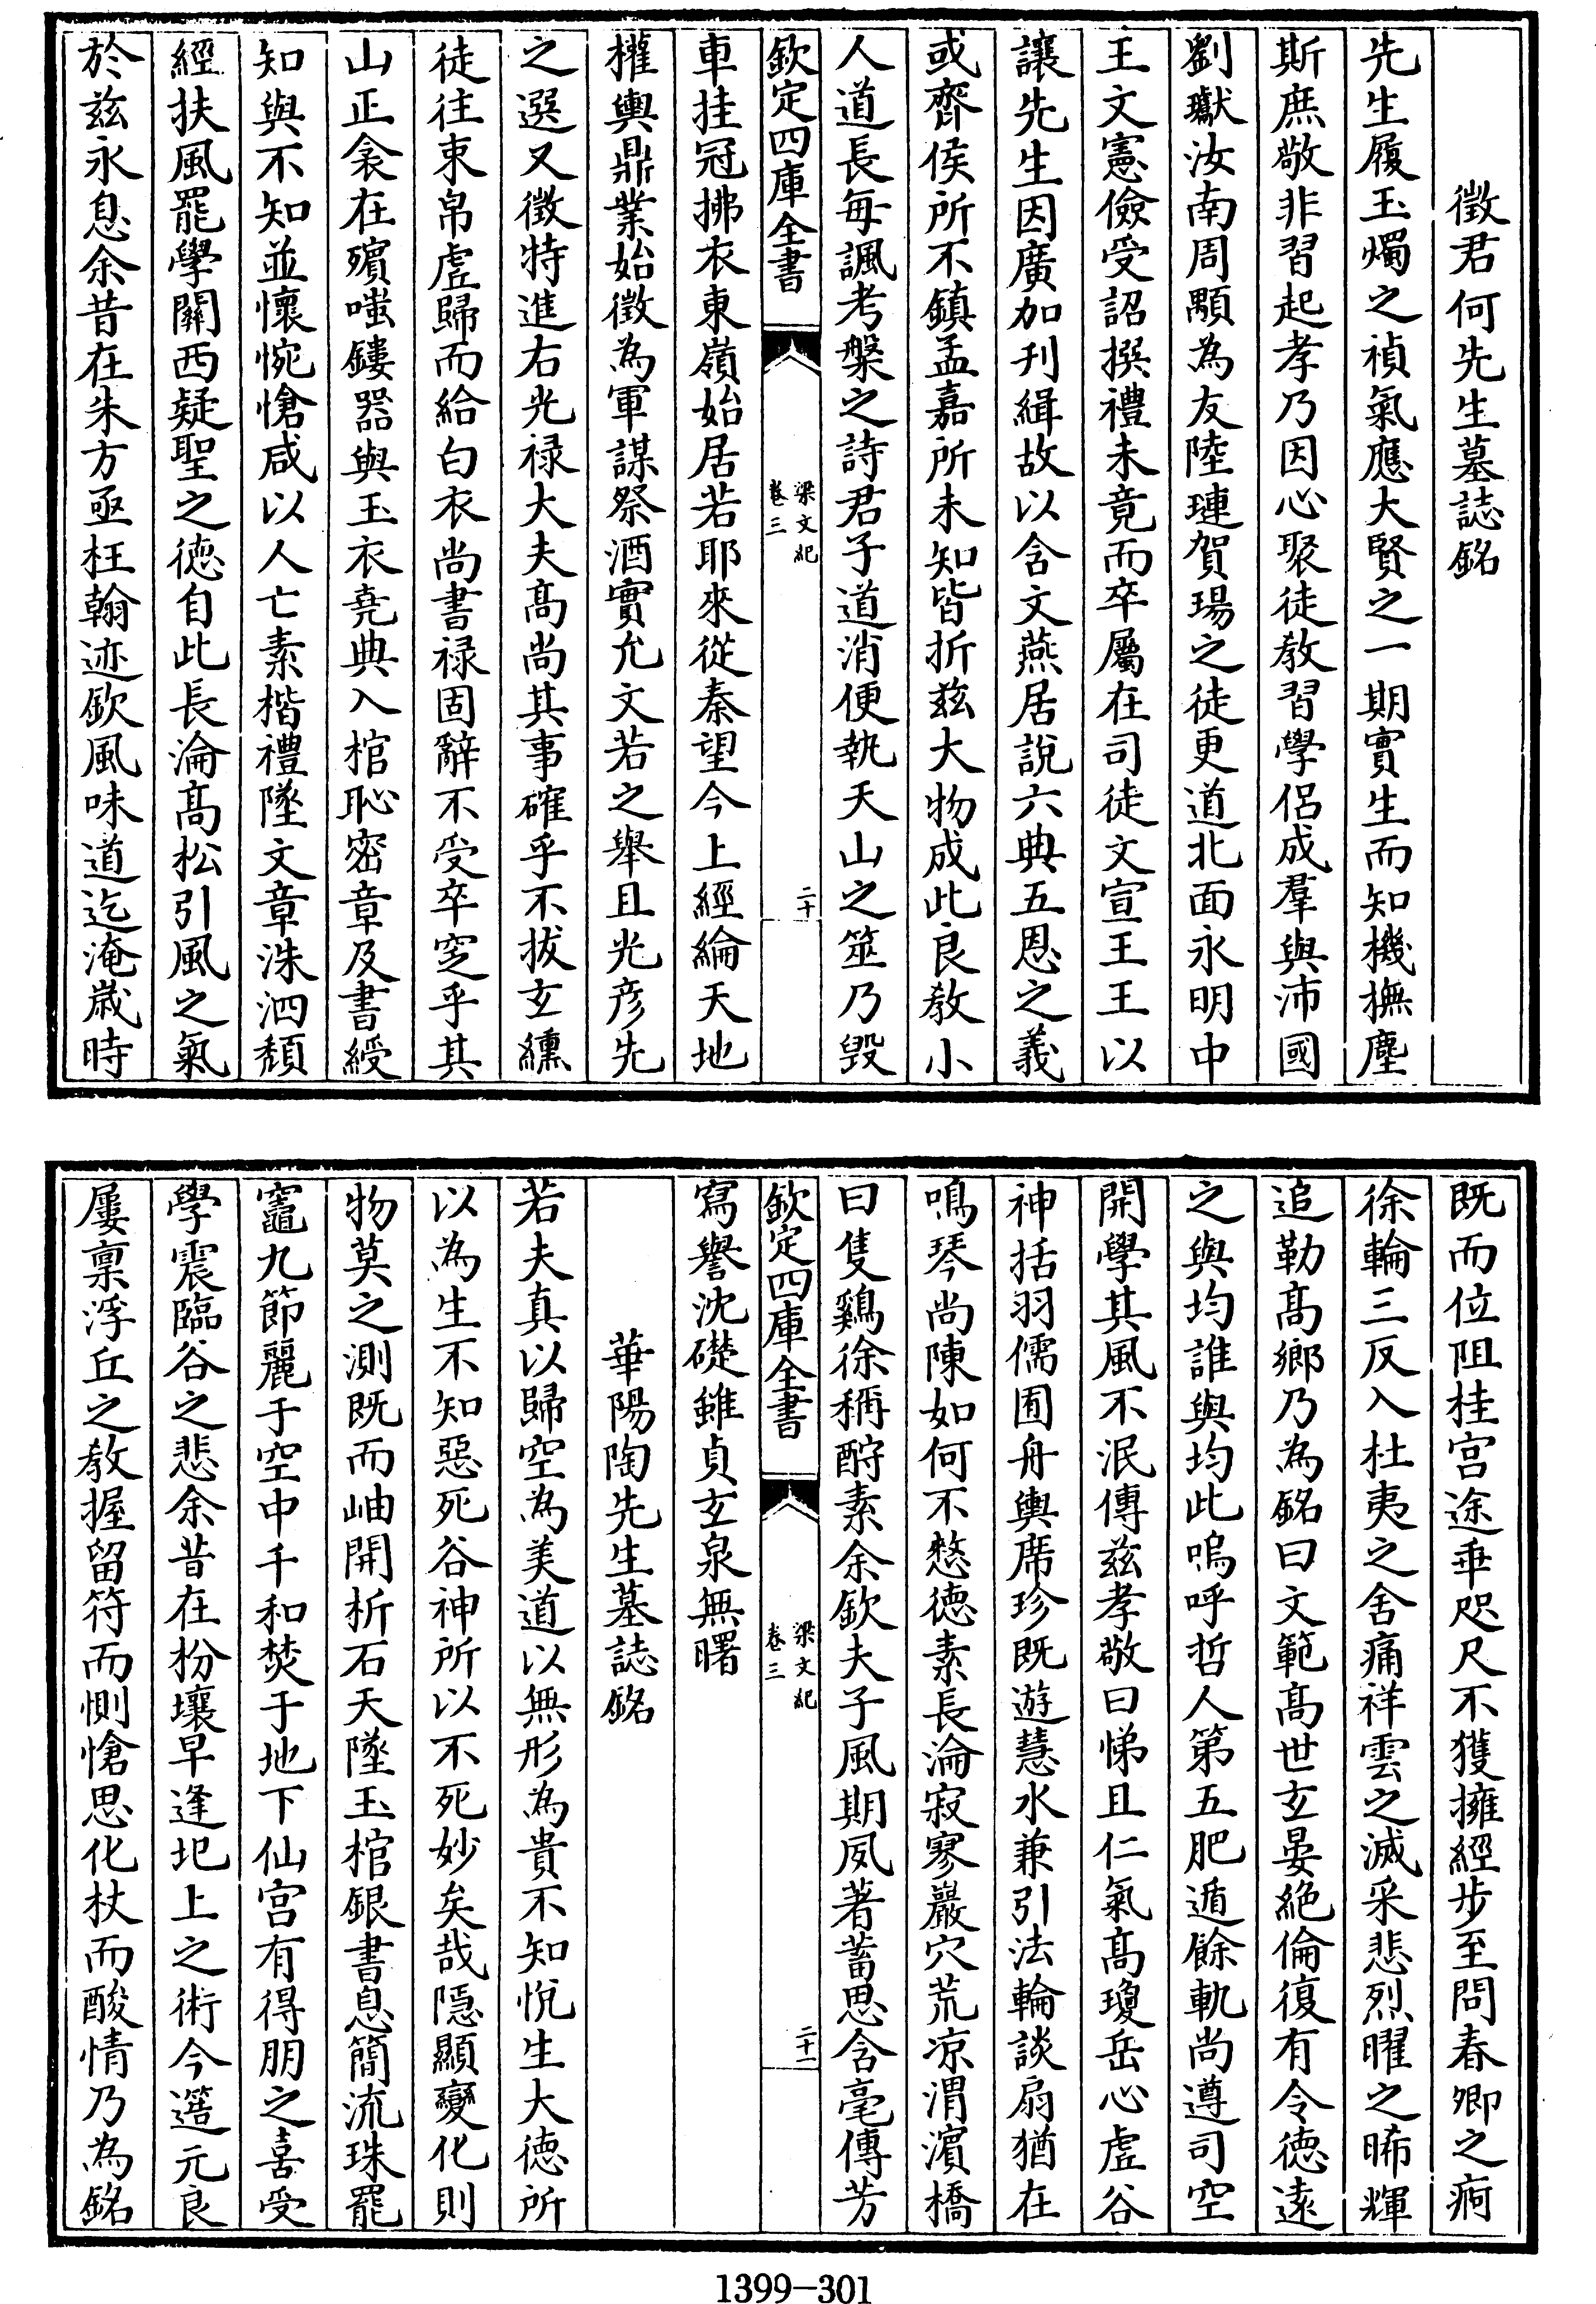 徵君何先生墓誌銘
先生履玉燭之禎氣應大賢之一期實生而知機撫塵
斯庶敬非習起孝乃因心聚徒教習學侶成羣與沛國
劉瓛汝南周顒為友陸璉賀瑒之徒更道北面永明中
王文憲儉受詔撰禮未竟而卒屬在司徒文宣王王以
讓先生因廣加刋緝故以含文燕居說六典五恩之義
或齊侯所不鎮孟嘉所未知皆折兹大物成此良教小
人道長每諷考槃之詩君子道消便執天山之筮乃毁
欽定四庫全書
梁文紀
卷三
二十
車挂冠拂衣東嶺始居若耶來從秦望今上經綸天地
摧輿鼎業始徵為軍謀祭酒實允文若之舉且光彦先
之選又徵特進右光禄大夫髙尚其事確乎不拔玄纁
徒往束帛虚歸而給白衣尚書禄固辭不受卒窆乎其
山正衾在殯嗤鏤器與玉衣堯典入棺恥密章及書綬
知與不知並懷惋愴咸以人亡素楷禮墜文章洙泗頽
經扶風罷學關西疑聖之德自此長淪髙松引風之氣
於兹永息余昔在朱方亟枉翰迹欽風味道迄淹歲時
既而位阻桂宫途乖咫尺不獲擁經步至問春卿之痾
徐輪三反入杜夷之舍痛祥雲之滅采悲烈曜之晞輝
追勒髙鄉乃為銘曰文範髙世玄晏絶倫復有令徳逺
之與均誰與均此嗚呼哲人第五肥遁餘軌尚遵司空
開學其風不泯傳兹孝敬曰悌且仁氣髙瓊岳心虚谷
神括羽儒囿舟輿席珍既遊慧水兼引法輪談扇猶在
鳴琴尚陳如何不憗德素長淪寂寥巖穴荒凉渭濱橋
曰隻鷄徐稱酹素余欽夫子風期夙著蓄思含毫傳芳
欽定四庫全書
梁文紀
卷三
二十一
寫譽沈礎雖貞玄泉無曙
華陽陶先生墓誌銘
若夫真以歸空為美道以無形為貴不知悦生大德所
以為生不知惡死谷神所以不死妙矣哉隠顯變化則
物莫之測既而岫開析石天墜玉棺銀書息簡流珠罷
竈九節麗于空中千和焚于地下仙宫有得朋之喜受
學震臨谷之悲余昔在枌壤早逢圯上之術今簉元良
屢禀浮丘之教握留符而惻愴思化杖而酸情乃為銘
1399-301